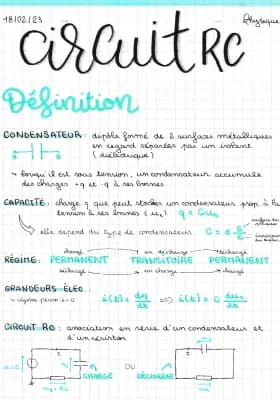 18/02/23
Physique
circuit RC
Définition
CONDENSATEUR : dipôle formé de 2 surfaces métalliques
en regard séparées par un isolant
(diélectrique)
A B
→ lorsqu'il est sous tension, un condensateur accumule
des charges +q et -q à ses bornes
CAPACITÉ : charge q que peut stocker un condensateur prop à la
tension à ses bornes (uc) q = Cuc
elle dépend du type de condensateur C = ε S/e
chargé en décharge déchargé
RÉGIME : PERMANENT TRANSITOIRE PERMANENT
déchargé en charge chargé
GRANDEURS ÉLEC :
→ régime perm i=0 i(t) = dq/dt ⇒ i(t) = C duc/dt
CIRCUIT RC : association en série d'un condensateur et
d'un résistor
CHARGE OU DÉCHARGE